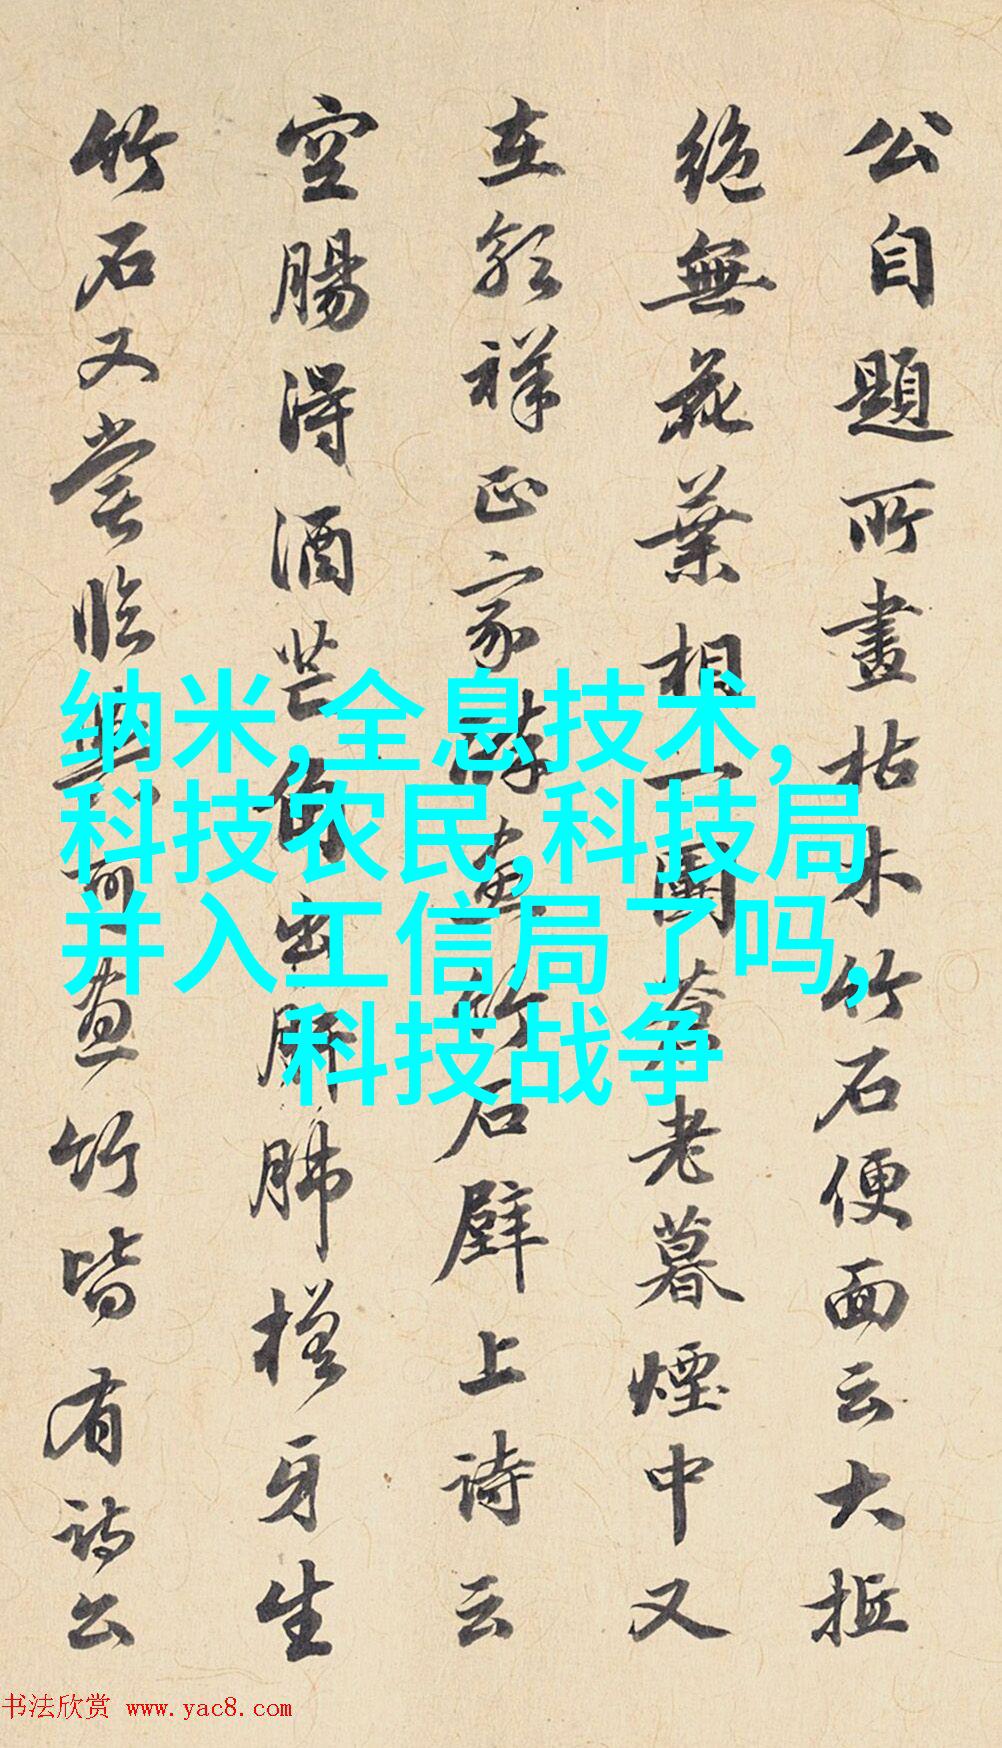 公自題所畫枯木竹石便面云大抵
絶無花葉相一闌蒼老暮煙中又
在郭祥正家醉畫竹石壁上詩云
空腸得酒芒角出肝肺槎牙生
竹石又嘗臨與可畫竹皆有詩公
纳米,全息技术,
科技农民,科技局
并入工信局了吗,
科技战争
书法欣赏 www.yac8.com